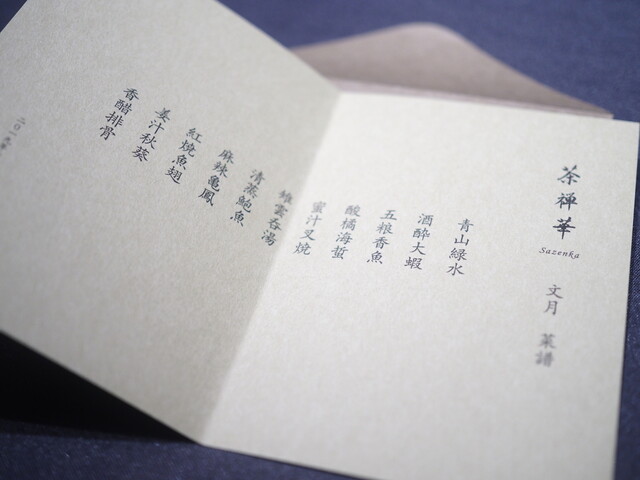 茶禅華
Sazenka
文月 菜譜
青山緑水
酒醉大蝦
五粮香魚
酸橘海蜇
蜜汁叉焼
雉雲呑湯
清蒸鮑魚
麻辣亀鳳
紅焼魚翅
姜汁秋葵
香醋排骨